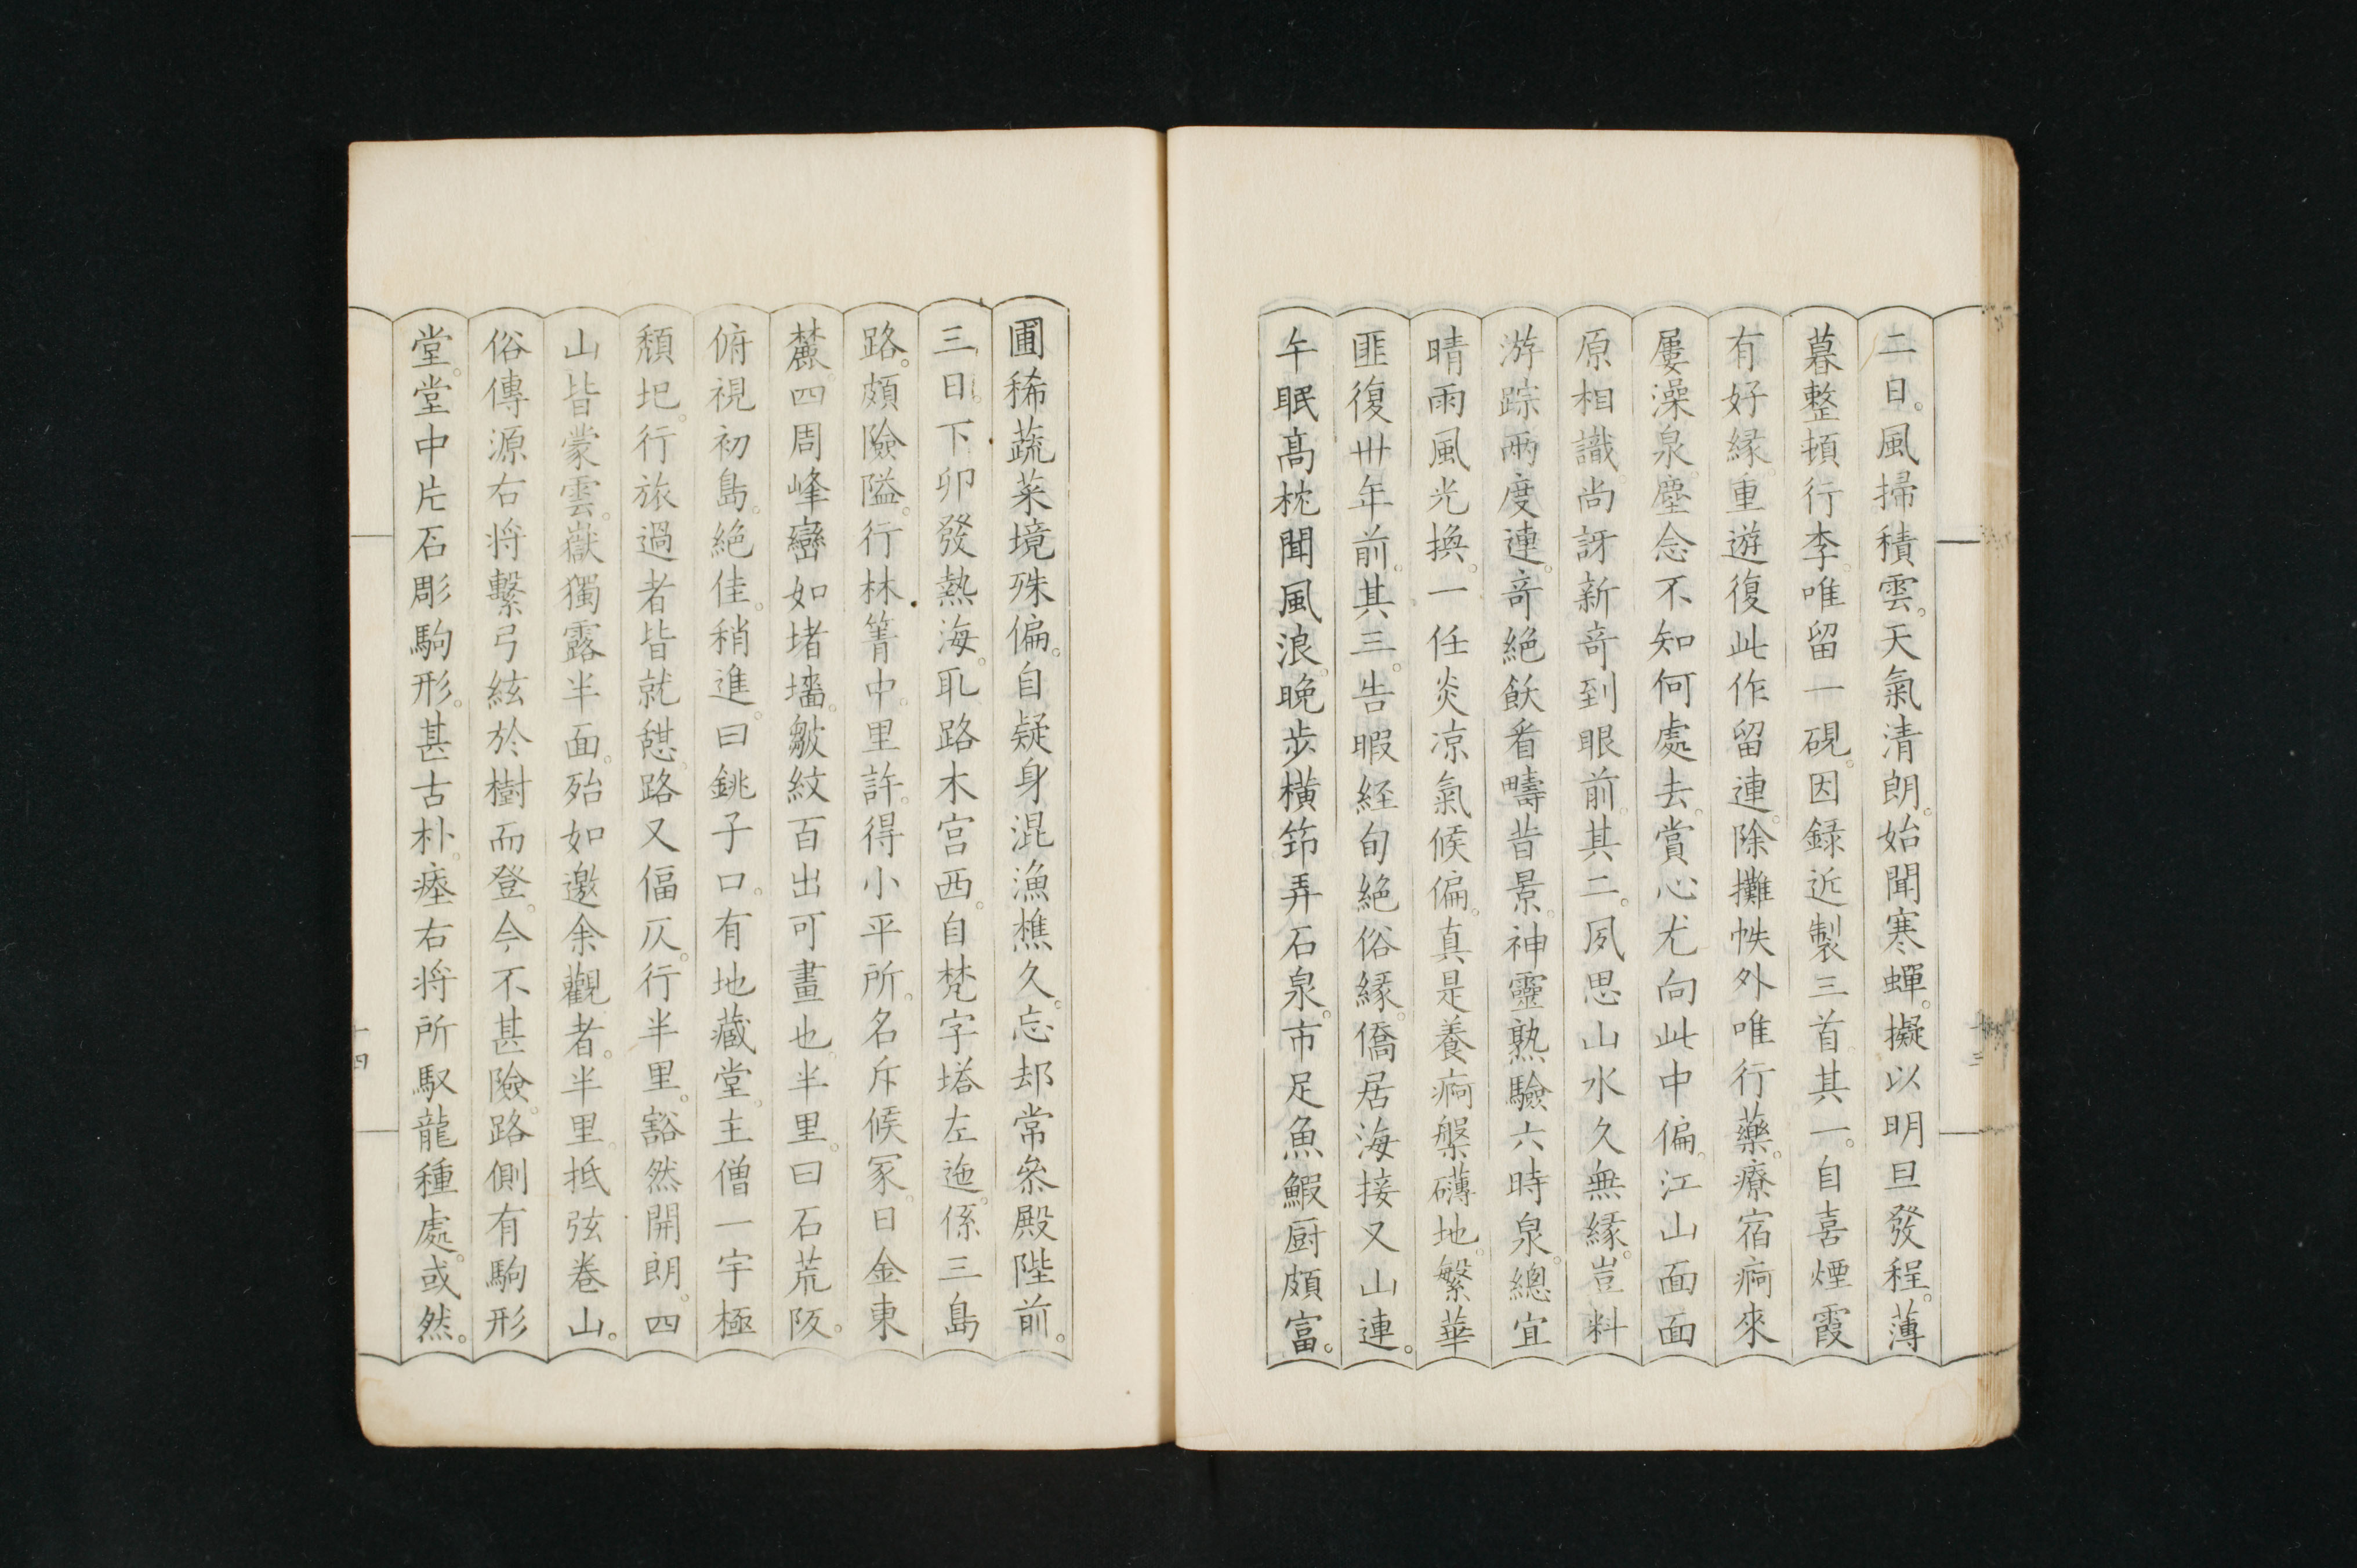 二日。風掃積雲。天氣清朗。始聞寒蟬。擬以明旦發程。薄
暮整頓行李。唯留一硯。因録近製三首其一。自喜煙霞
有好縁。重遊復此作留連。除攤帙外唯行藥。療宿痾來
屢澡泉。塵念不知何處去。賞心尤向此中偏。江山面面
原相識。尚訝新竒到眼前。其二。夙思山水久無縁。豈料
游踪兩度連。竒絶飫看疇昔景。神靈熟驗六時泉。總宜
晴雨風光換。一任炎凉氣候偏。真是養痾槃礴地。繁華
匪復卅年前。其三。告暇経旬絶俗縁。僑居海接又山連。
午眠髙枕聞風浪。晩步橫筇弄石泉。市足魚鰕厨頗富。
圃稀蔬菜境殊偏。自疑身混漁樵久。忘却常叅殿陛前。
三日。下卯發熱海。耴路木宮西。自梵字塔左迤。係三島
路。頗險隘。行林箐中。里許。得小平所。名斥候冢。日金東
麓。四周峰巒如堵墻。皺紋百出可畫也。半里。曰石荒阪。
俯視初島。絶佳。稍進。曰銚子口。有地藏堂。主僧一宇極
頽圯。行旅過者皆就憇。路又偪仄。行半里。豁然開朗。四
山皆蒙雲。嶽獨露半面。殆如邀余觀者。半里。抵弦巻山。
俗傳源右將繫弓絃於樹而登。今不甚險。路側有駒形
堂。堂中片石彫駒形。甚古朴。瘞右將所馭龍種處。或然。
十四